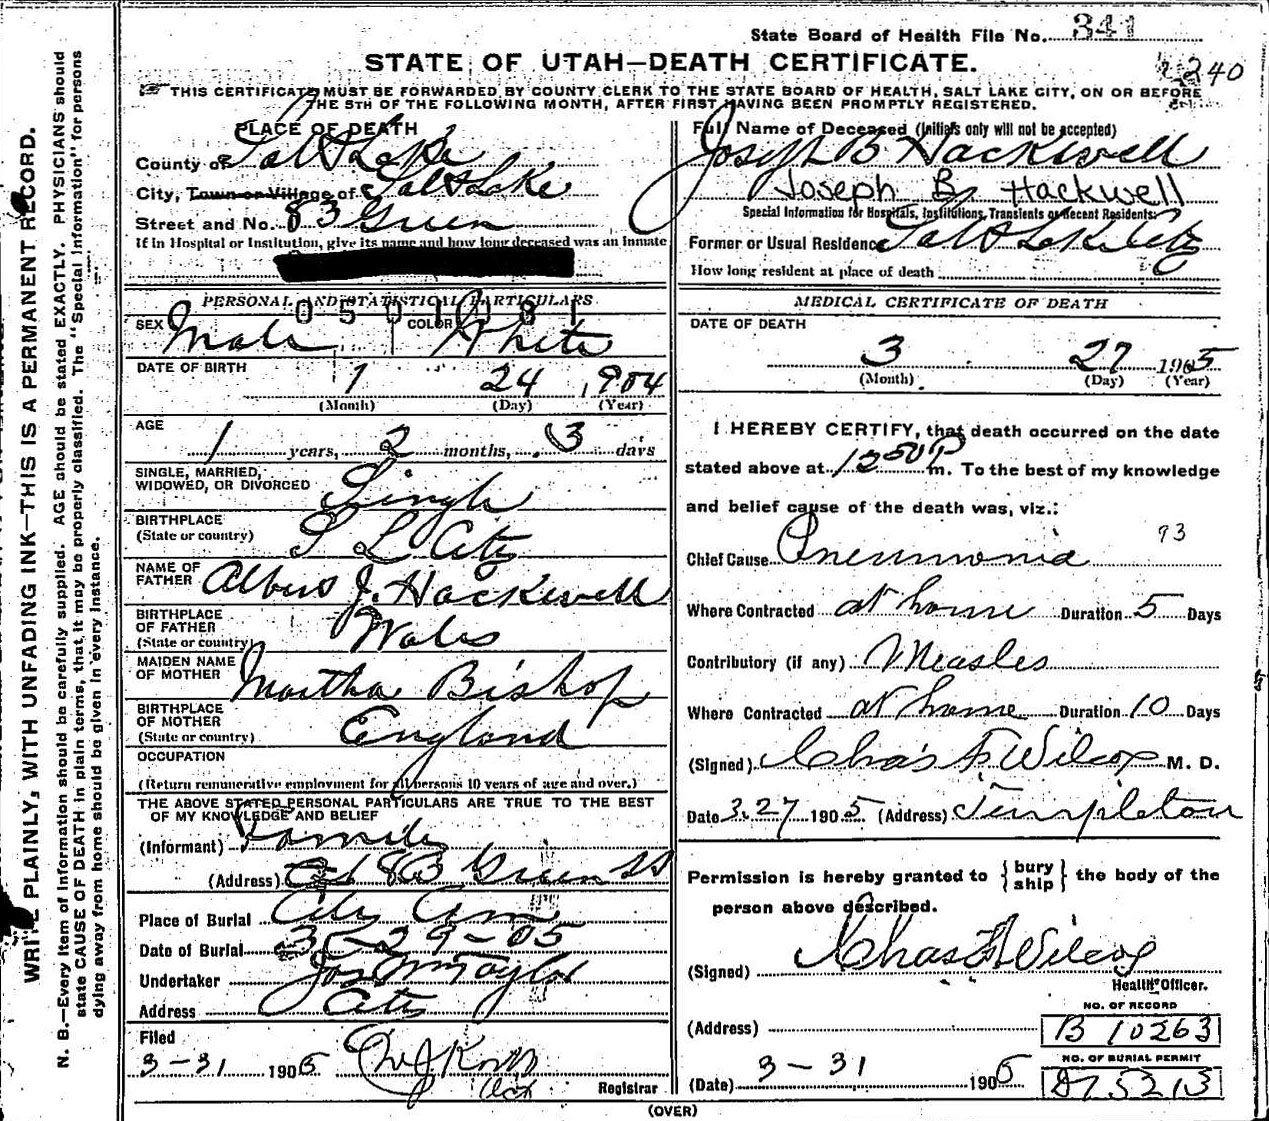 State Board of Health File No. 341
STATE OF UTAH—DEATH CERTIFICATE.
240
THIS CERTIFICATE MUST BE FORWARDED BY COUNTY CLERK TO THE STATE BOARD OF HEALTH, SALT LAKE CITY, ON OR BEFORE
THE 5TH OF THE FOLLOWING MONTH, AFTER FIRST HAVING BEEN PROMPTLY REGISTERED.
WRITE PLAINLY, WITH UNFADING INK—THIS IS A PERMANENT RECORD.
N. B.—Every item of information should be carefully supplied. AGE should be stated EXACTLY. PHYSICIANS should
state CAUSE OF DEATH in plain terms, that it may be properly classified. The "Special Information" for persons
dying away from home should be given in every instance.
PLACE OF DEATH
County of Salt Lake
City, Town or Village of Salt Lake
Street and No. 83 Green
If in Hospital or Institution, give its name and how long deceased was an inmate
PERSONAL AND STATISTICAL PARTICULARS
0501031
SEX Male COLOR White
DATE OF BIRTH
1 24 1904
(Month) (Day) (Year)
AGE
1 years, 2 months, 3 days
SINGLE, MARRIED,
WIDOWED, OR DIVORCED Single
BIRTHPLACE
(State or country) S L City
NAME OF
FATHER J. Hackwell
BIRTHPLACE
OF FATHER
(State or country) Wales
MAIDEN NAME
OF MOTHER Martha Bishop
BIRTHPLACE
OF MOTHER
(State or country) England
OCCUPATION
(Return remunerative employment for all persons 10 years of age and over.)
THE ABOVE STATED PERSONAL PARTICULARS ARE TRUE TO THE BEST
OF MY KNOWLEDGE AND BELIEF
(Informant) Family
(Address) 83 Green St
Place of Burial City Cem
Date of Burial 3-29-05
Undertaker Jos Wm Taylor
Address City
Filed
3-31 1905
Registrar
Full Name of Deceased (Initials only will not be accepted)
Joseph B Hackwell
Joseph B. Hackwell
Special Information for Hospitals, Institutions, Transients or Recent Residents:
Former or Usual Residence Salt Lake City
How long resident at place of death
MEDICAL CERTIFICATE OF DEATH
DATE OF DEATH
3 27 1905
(Month) (Day) (Year)
I HEREBY CERTIFY, that death occurred on the date
stated above at 1250 P m. To the best of my knowledge
and belief cause of the death was, viz.:
93
Chief Cause Pneumonia
Where Contracted at home Duration 5 Days
Contributory (if any) Measles
Where Contracted at home Duration 10 Days
(Signed) Chas F Wilcox M. D.
Date 3.27 1905 (Address) Templeton
Permission is hereby granted to { bury
ship } the body of the
person above described.
(Signed) Chas F Wilcox
Health Officer.
NO. OF RECORD
(Address) B 10263
NO. OF BURIAL PERMIT
(Date) 3-31 1905 D75213
(OVER)